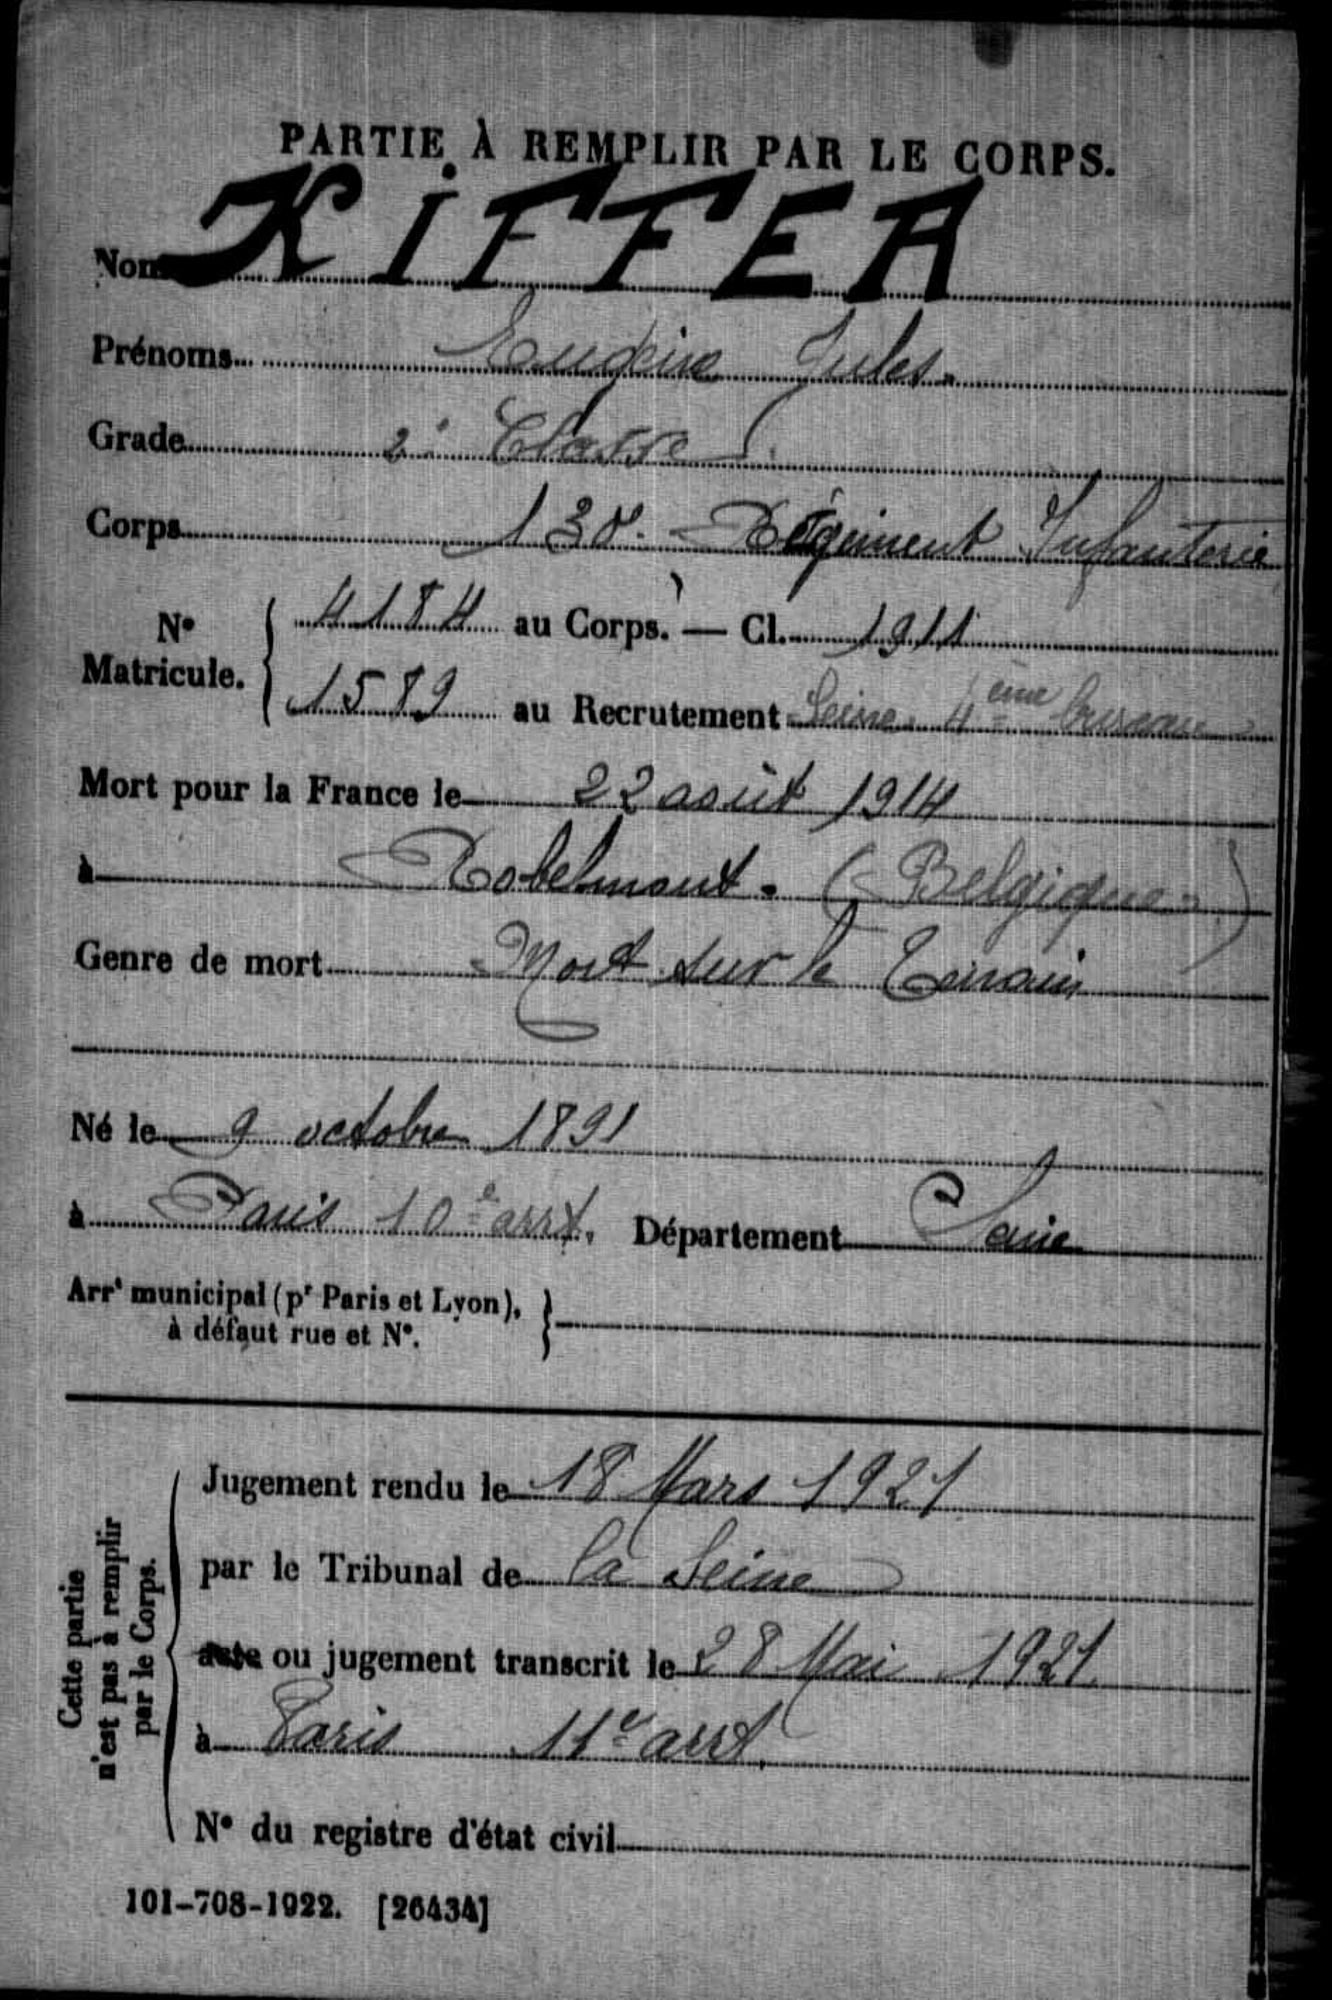 PARTIE À REMPLIR PAR LE CORPS.
Nom KIFFEA
Prénoms Eugène Jules.
Grade 2e Classe
Corps 130. Régiment Infanterie
No Matricule. { 4184 au Corps. — Cl. 1911
1589 au Recrutement Seine 4ème bureau
Mort pour la France le 22 août 1914
à Robelmont. (Belgique)
Genre de mort Mort sur le Terrain
Né le 9 octobre 1891
à Paris 10e arrt. Département Seine
Arrt municipal (pr Paris et Lyon), }
à défaut rue et No.
Cette partie n'est pas à remplir par le Corps.
Jugement rendu le 18 Mars 1921
par le Tribunal de la Seine
acte ou jugement transcrit le 28 Mai 1921
à Paris 11e arrt
No du registre d'état civil
101-708-1922. [26434]